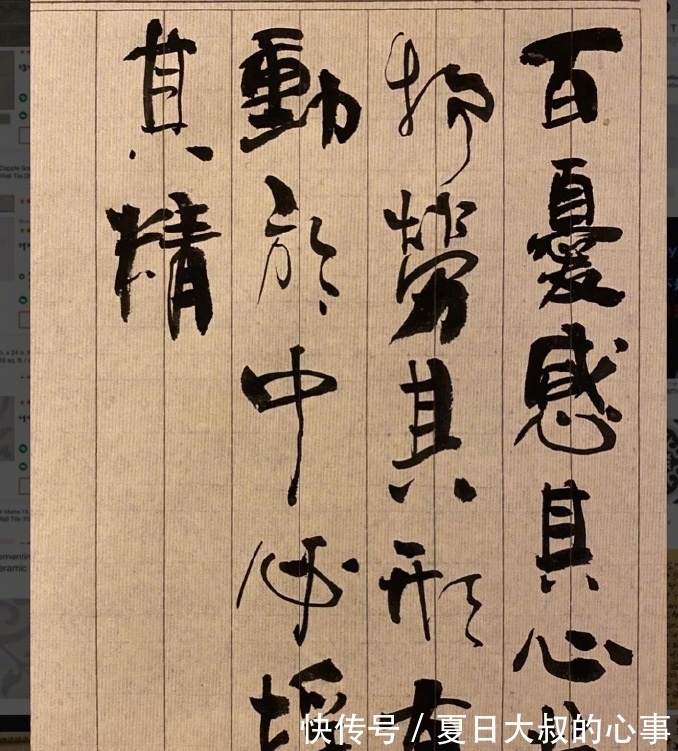 百憂感其心
物勞其形有
動於中必搖
其精
快传号 / 夏日大叔的心事